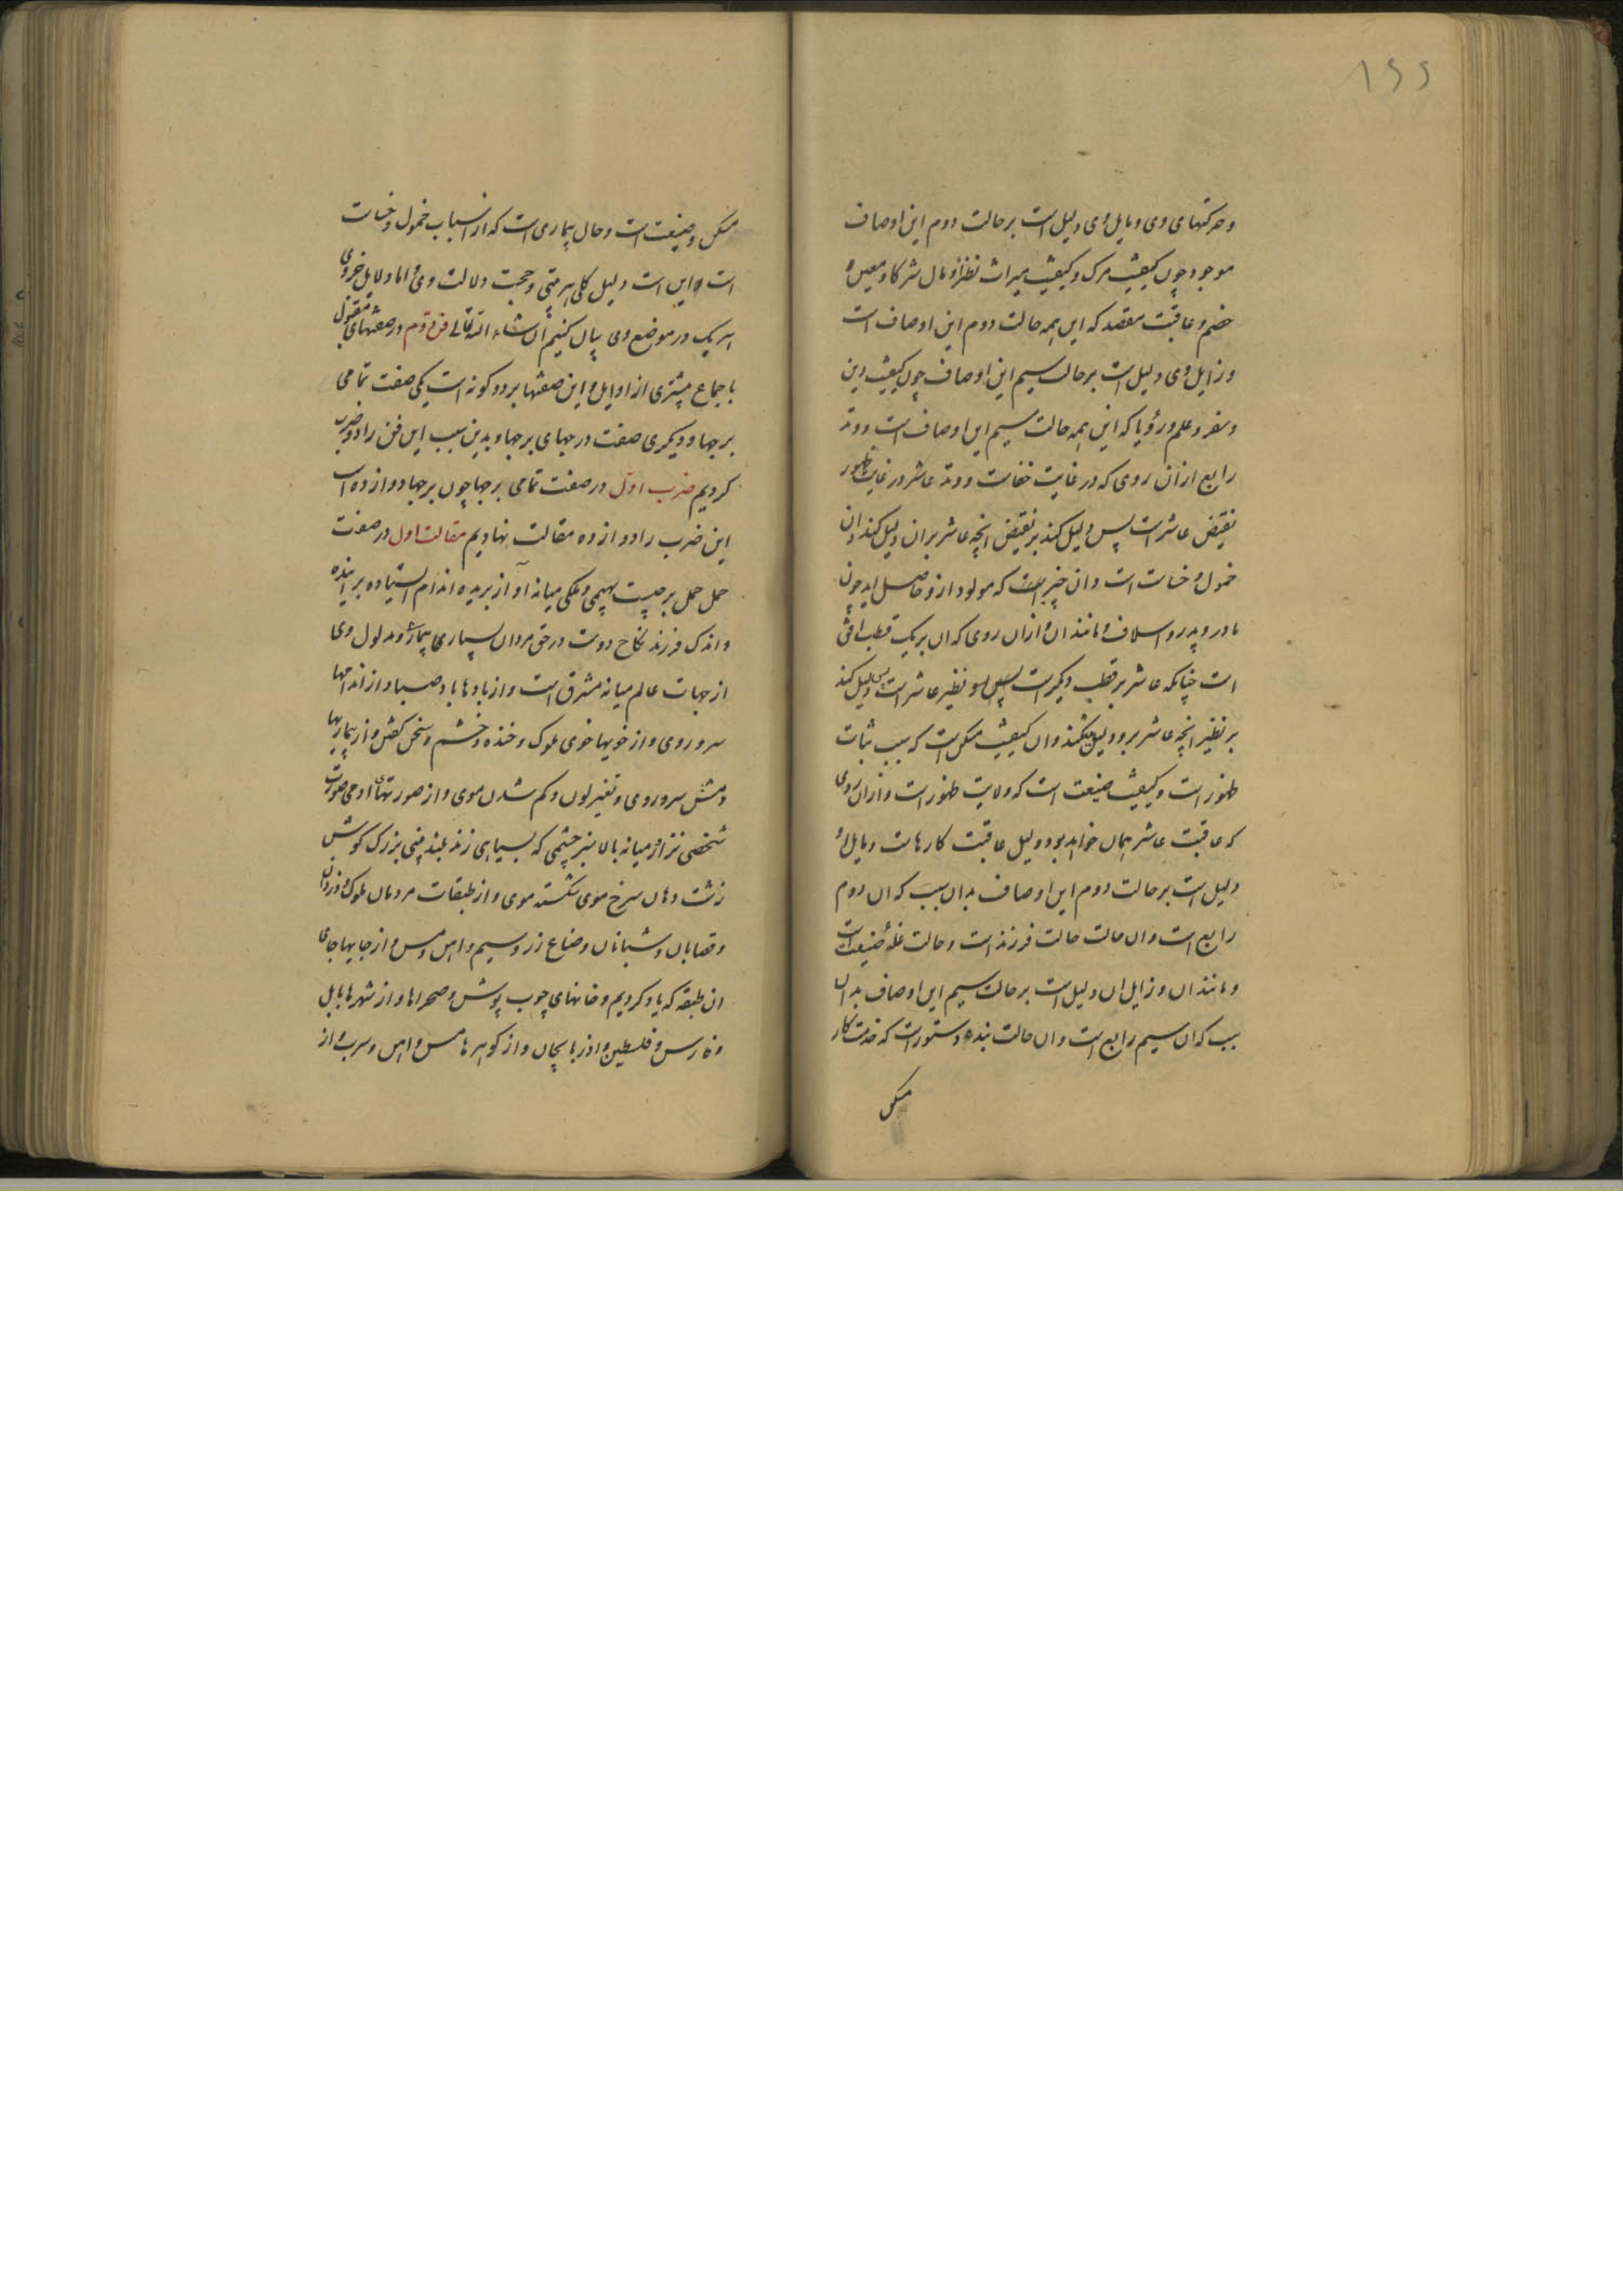 ۱۶۶
وحرکتهای وی ومایل وی دلیل است بر حالت دوم این اوصاف
موجود چون کیفیت مرک وکیفیت میراث نظراز ومال شرکا ومعین و
خصم وعاقبت مقصد که این همه حالت دوم این اوصاف است
وزایل وی دلیل است بر حالت سیم این اوصاف چون کیفیت دین
وسفر وعلم ورؤیا که این همه حالت سیم این اوصاف است ووتد
رابع ازان روی که در غایت خفاست ووتد عاشر در غایت ظهور
نقیض عاشر است پس دلیل کند بر نقیض انچه عاشر بران دلیل کند وان
خمول وخساست است وان چیز است که مولود ازو حاصل اید چون
مادر وپدر واسلاف ومانند ان وازان روی که ان بر یک قطب افق
است چنانکه عاشر بر قطب دیکر است پس او نظیر عاشر است پس دلیل کند
بر نظیر انچه عاشر برو دلیل میکند وان کیفیت مسکن است که سبب ثبات
ظهور است وکیفیت ضیعت است که ولایت ظهور است وازان روی
که عاقبت عاشر همان خواهد بود دلیل عاقبت کارهاست ومایل او
دلیل است بر حالت دوم این اوصاف بدان سبب که ان دوم
رابع است وان حالت حالت فرزند است وحالت غله ضیعت است
ومانند ان وزایل ان دلیل است بر حالت سیم این اوصاف بدان
سبب که ان سیم رابع است وان حالت بنده وستور است که خدمتکار
مسکن
مسکن وضیعت است وحال بیماری است که از اسباب خمول وخساست
است واین است دلیل کلی هر بیتی وحجت دلالت وی واما دلایل جزوی
هر یک در موضع وی بیان کنیم ان شاء الله تعالی فن دوم در صفتهای مقبول
باجماع بیشتری از اوایل واین صفتها بر دو کونه است یکی صفت تمامی
برجها ودیکری صفت درجهای برجها وبدین سبب این فن را دو ضرب
کردیم ضرب اول در صفت تمامی برجها چون برجها دوازده است
این ضرب را دوازده مقالت نهادیم مقالت اول در صفت
حمل حمل برجیست بهیمی وملکی میانه آواز بریده اندام ایستاده براینده
واندک فرزند نکاح دوست در حق مردان بسیاری بیمار ومدلول وی
از جهات عالم میانه مشرق است واز بادها باد صبا واز اندامها
سر وروی واز خویها خوی ملوک وخنده وخشم وسخن کفتن واز بیماریها
ومش سر وروی وتغیر لون وکم شدن موی واز صورتهای ادمی صورت
شخصی نزار میانه بالا سبز چشمی که بسیاهی زند بلند بینی بزرک کوش
زشت دهان سرخ موی شکسته موی واز طبقات مردمان ملوک ودزدان
وقصابان وشبانان وصناع زر وسیم واهن ومس واز جایها جای
ان طبقه که یاد کردیم وخانهای چوب پوش وصحراها واز شهرها بابل
وفارس وفلسطین واذربایجان واز کوهرها مس واهن وسرب واز